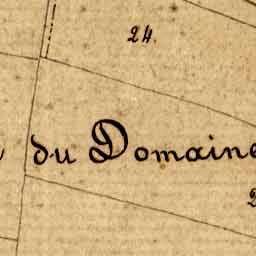 24.
du Domaine